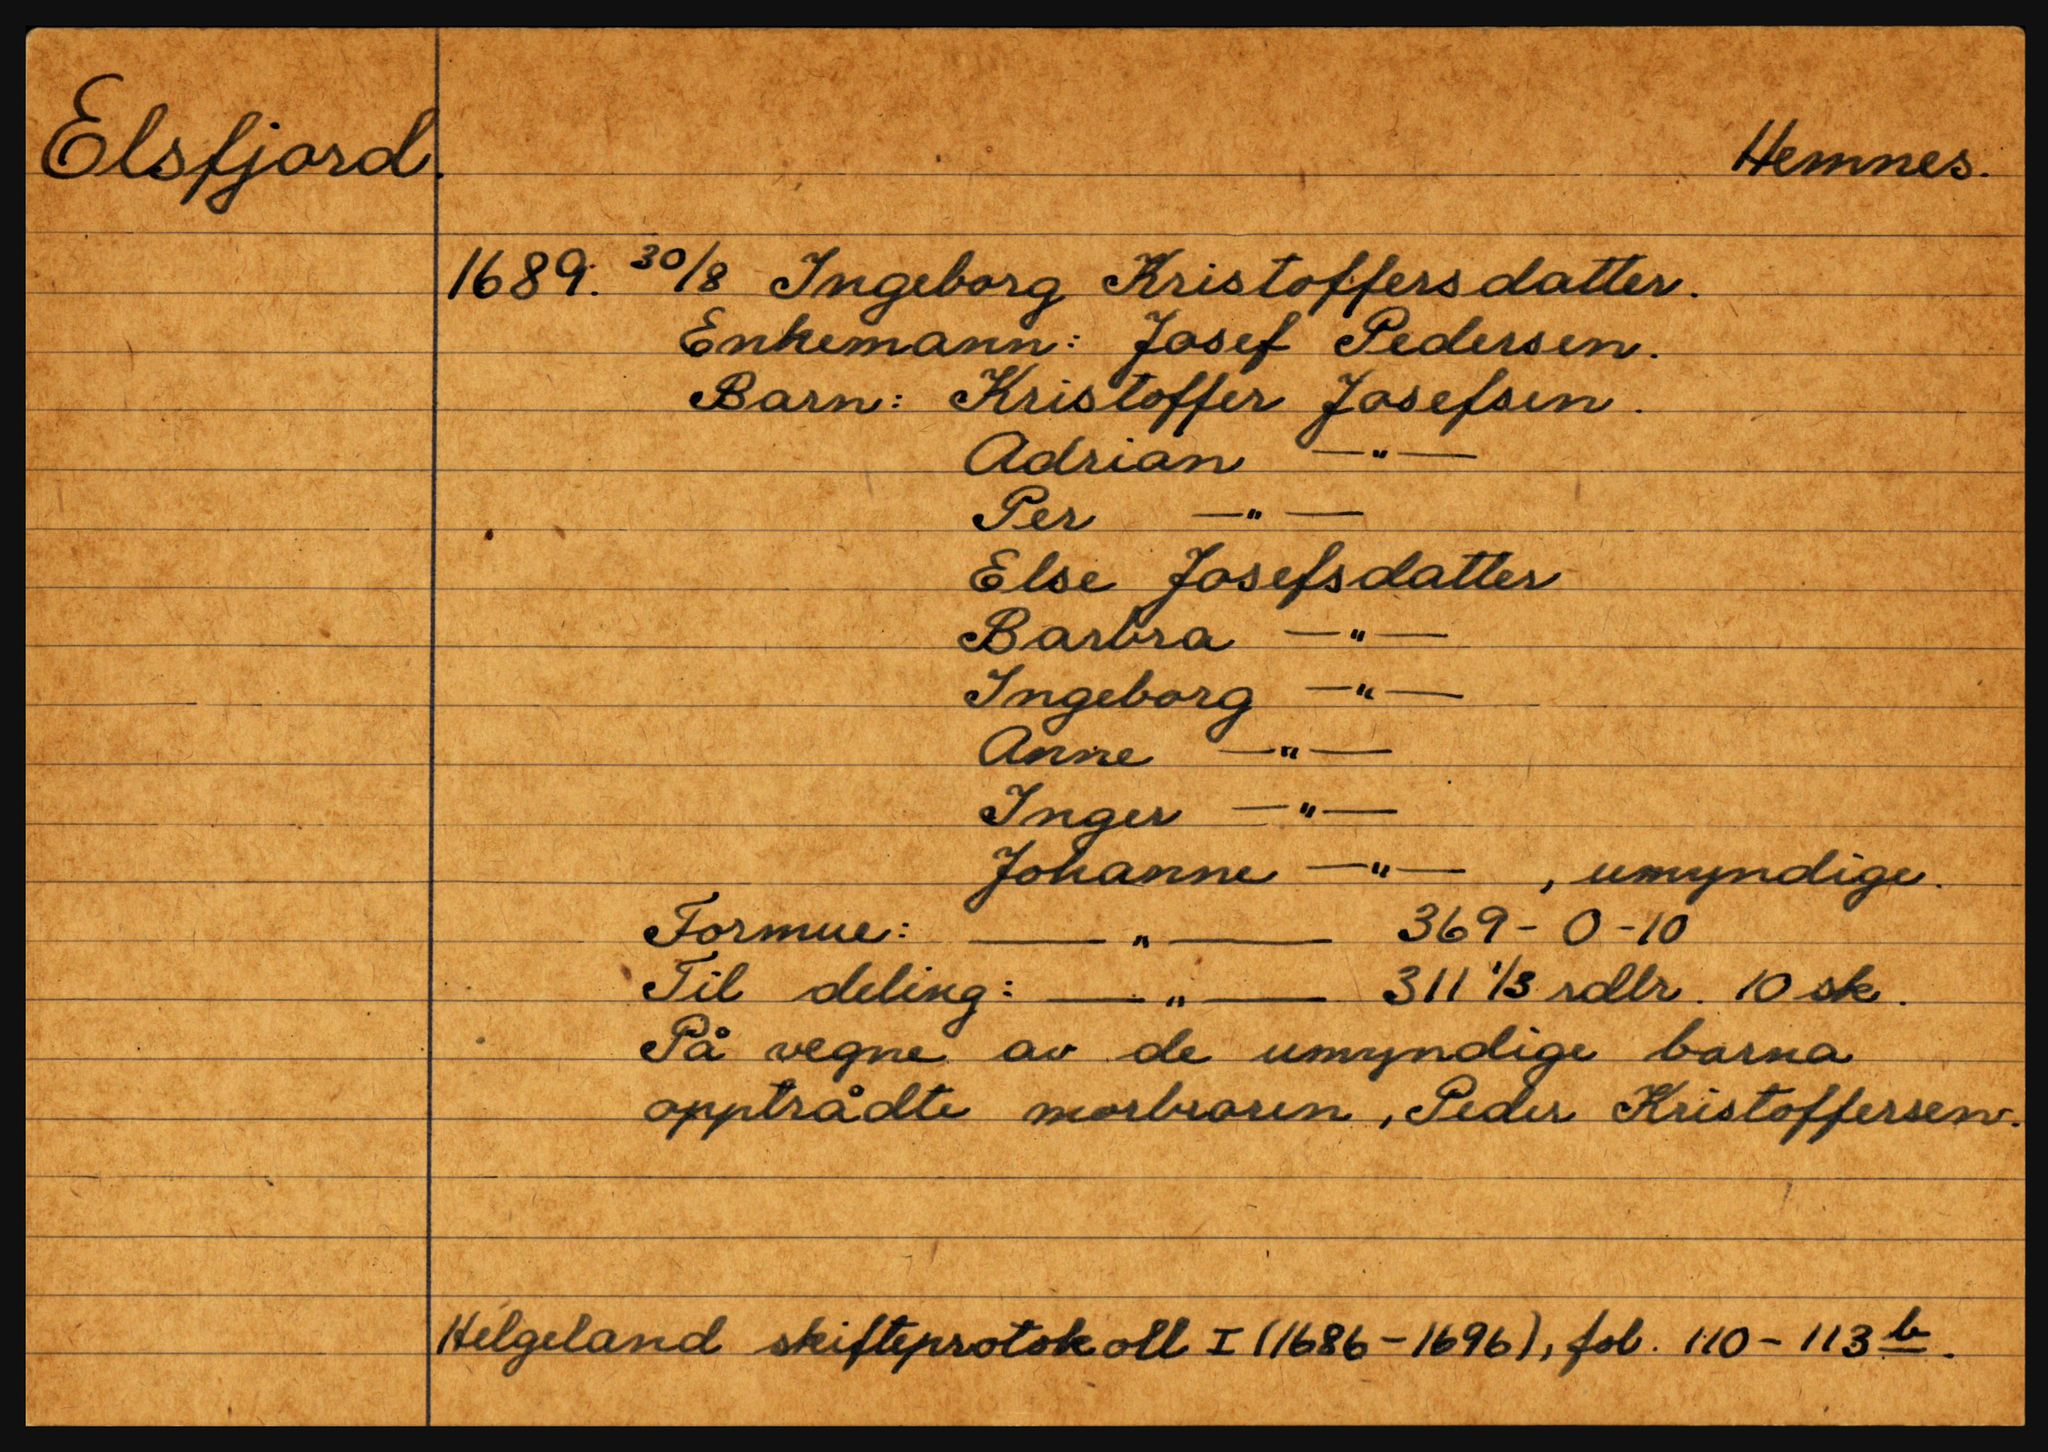 Elsfjord. Hemnes.
1689. 30/8 Ingeborg Kristoffersdatter.
Enkemann: Josef Pedersen.
Barn: Kristoffer Josefsen.
Adrian —"—
Per —"—
Else Josefsdatter
Barbra —"—
Ingeborg —"—
Anne —"—
Inger —"—
Johanne —"— , umyndige.
Formue: —"— 369 - 0 - 10
Til deling: —"— 311 1/3 rdlr. 10 sk.
På vegne av de umyndige barna
opptrådte morbroren, Peder Kristoffersen.
Helgeland skifteprotokoll I (1686-1696), fol. 110 - 113 b.